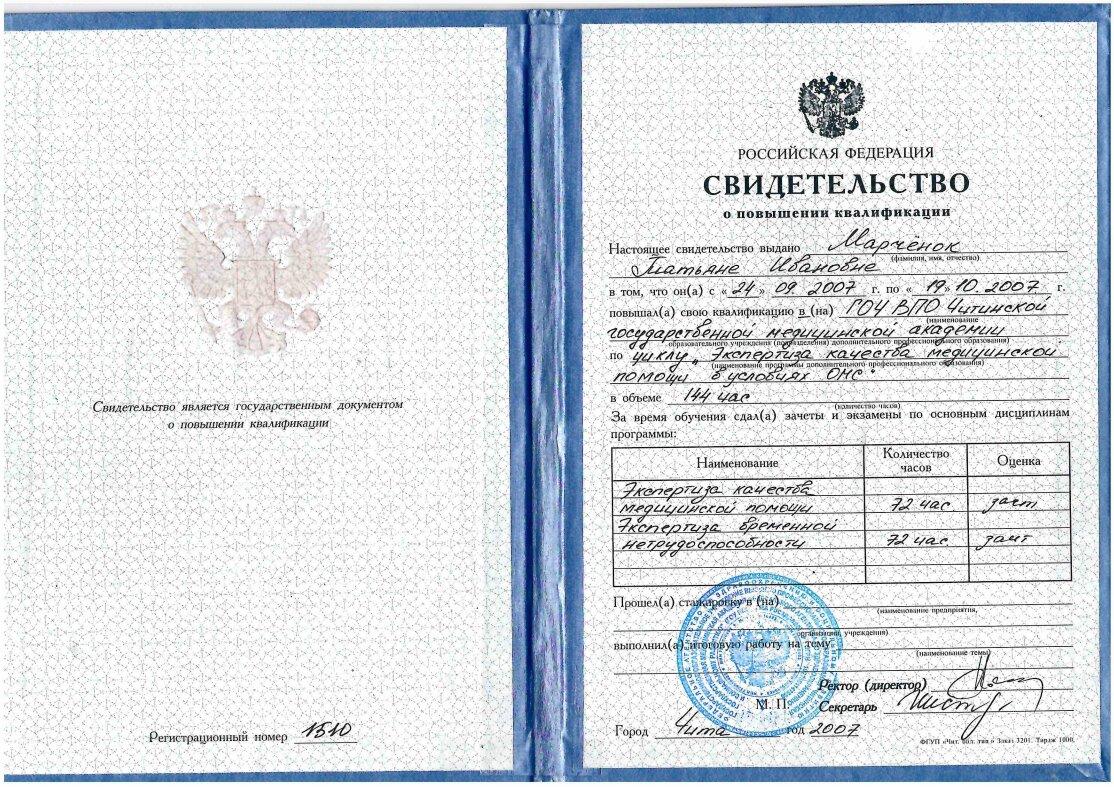 Свидетельство является государственным документом
о повышении квалификации
Регистрационный номер 1510
РОССИЙСКАЯ ФЕДЕРАЦИЯ
СВИДЕТЕЛЬСТВО
о повышении квалификации
Настоящее свидетельство выдано Марчёнок
(фамилия, имя, отчество)
Татьяне Ивановне
в том, что он(а) с « 24 » 09. 2007 г. по « 19 » 10. 2007 г.
повышал(а) свою квалификацию в (на) ГОУ ВПО Читинской
(наименование
государственной медицинской академии
образовательного учреждения (подразделения) дополнительного профессионального образования)
по циклу „ Экспертиза качества медицинской
(наименование программы дополнительного профессионального образования)
помощи в условиях ОМС"
в объеме 144 час
(количество часов)
За время обучения сдал(а) зачеты и экзамены по основным дисциплинам
программы:
Наименование Количество часов Оценка
Экспертиза качества
медицинской помощи 72 час зачт
Экспертиза временной
нетрудоспособности 72 час зачт
Прошел(а) стажировку в (на)
(наименование предприятия,
организации, учреждения)
выполнил(а) итоговую работу на тему
(наименование темы)
Ректор (директор)
М. П. Секретарь
Город Чита год 2007
ФГУП «Чит. обл. тип.» Заказ 3201. Тираж 1000.